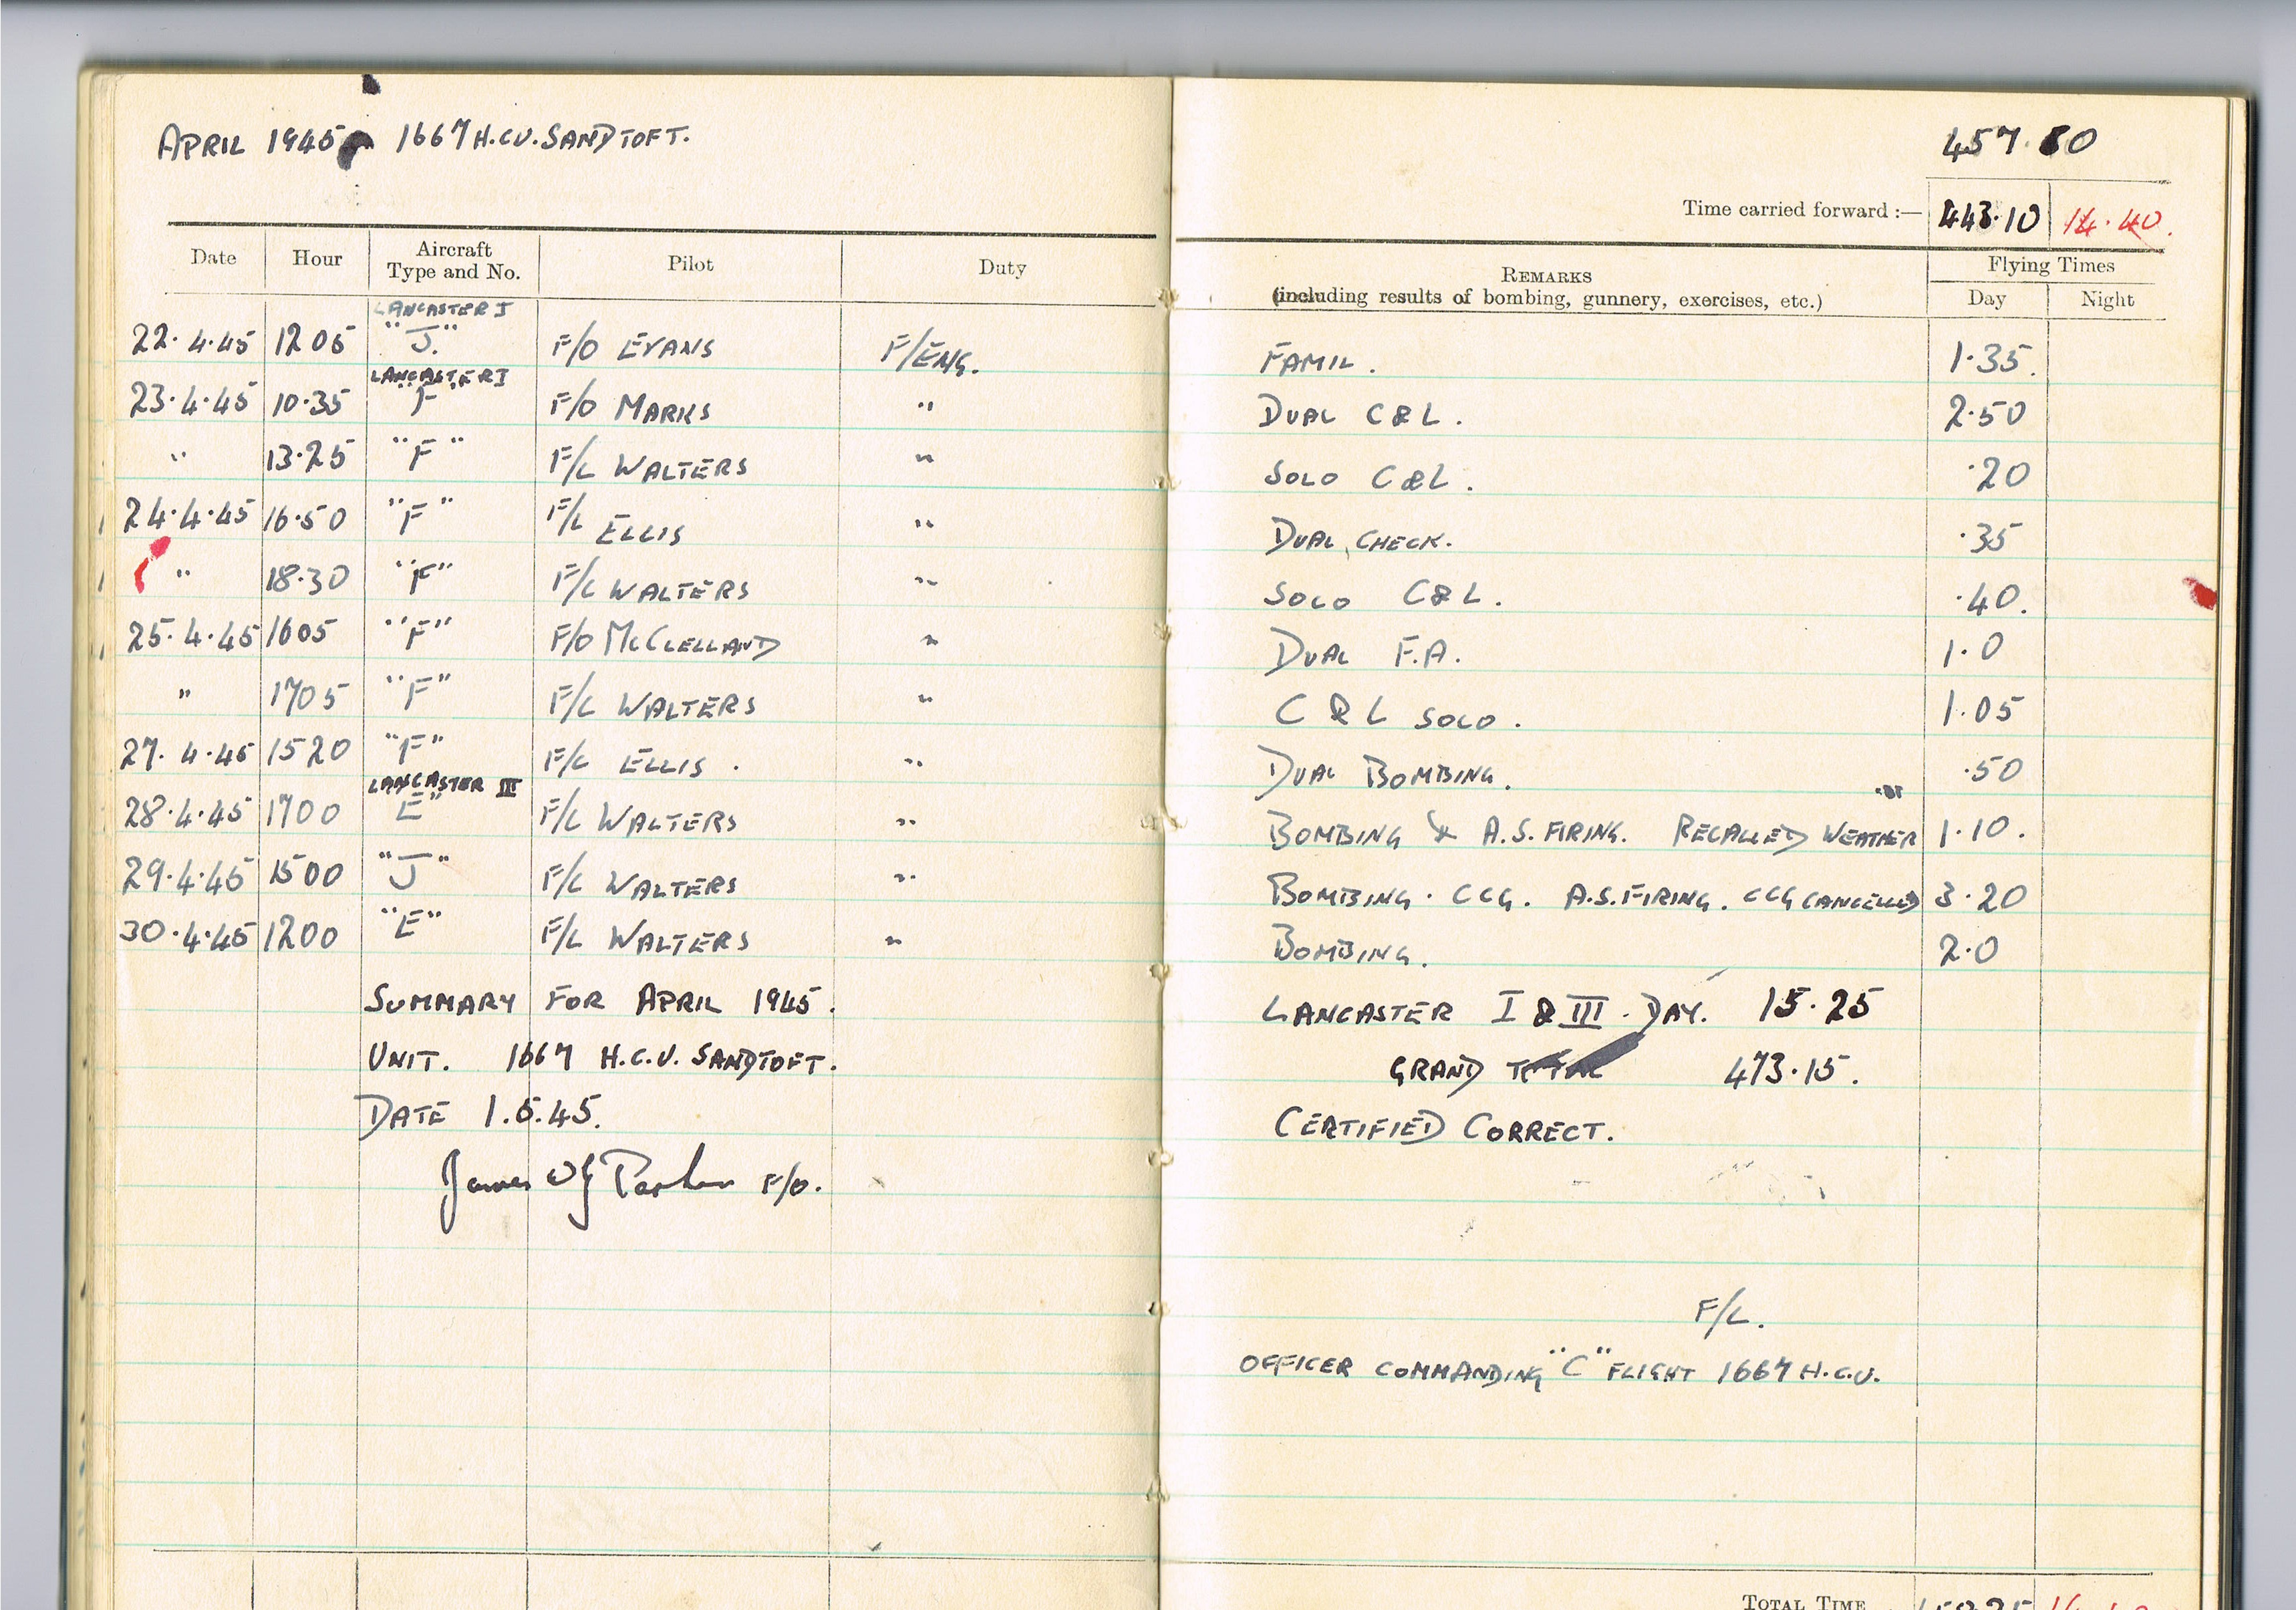 APRIL 1945 1667 H.C.U. SANDTOFT.
457.50
Time carried forward :— 443.10 14.40.
Date Hour Aircraft Type and No. Pilot Duty REMARKS (including results of bombing, gunnery, exercises, etc.) Flying Times Day Night
LANCASTER I
22.4.45 1205 "J." F/O EVANS F/ENG. FAMIL. 1.35.
LANCASTER I
23.4.45 10.35 "F" F/O MARKS " DUAL C & L. 2.50
" 13.25 "F" F/L WALTERS " SOLO C & L. .20
24.4.45 16.50 "F" F/L ELLIS " DUAL CHECK. .35
" 18.30 "F" F/L WALTERS " SOLO C & L. .40.
25.4.45 1605 "F" F/O McCLELLAND " DUAL F.A. 1.0
" 1705 "F" F/L WALTERS " C & L SOLO. 1.05
27.4.45 1520 "F" F/L ELLIS. " DUAL BOMBING. .50
LANCASTER III
28.4.45 1700 E" F/L WALTERS " BOMBING & A.S. FIRING. RECALLED WEATHER 1.10.
29.4.45 1500 "J" F/L WALTERS " BOMBING. CCG. A.S. FIRING. CCG CANCELLED 3.20
30.4.45 1200 "E" F/L WALTERS " BOMBING. 2.0
SUMMARY FOR APRIL 1945. LANCASTER I & III. DAY. 15.25
UNIT. 1667 H.C.U. SANDTOFT. GRAND TOTAL 473.15.
DATE 1.5.45. CERTIFIED CORRECT.
James F/O.
F/L.
OFFICER COMMANDING "C" FLIGHT 1667 H.C.U.
TOTAL TIME